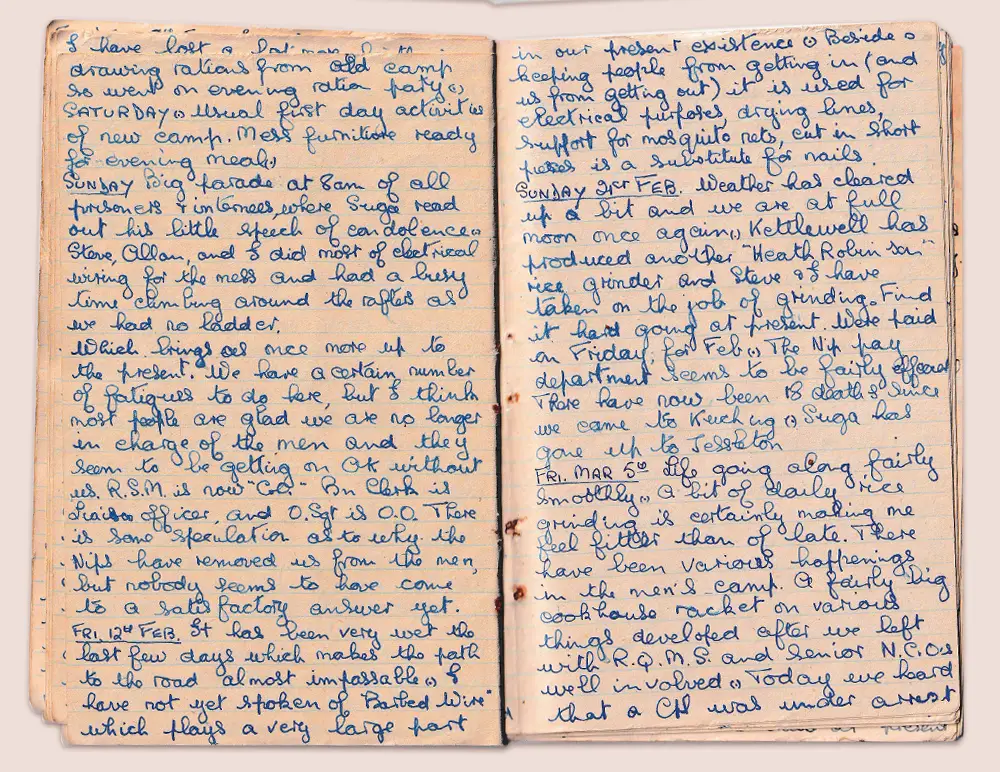 I have lost a
drawing rations from old camp
so went on evening ration party.
SATURDAY. Usual first day activities
of new camp. Mess furniture ready
for evening meal.
SUNDAY Big parade at 8am of all
prisoners & internees, where Suga read
out his little speech of condolence.
Steve, Allan, and I did most of electrical
wiring for the mess and had a busy
time climbing around the rafters as
we had no ladder.
Which brings us once more up to
the present. We have a certain number
of fatigues to do here, but I think
most people are glad we are no longer
in charge of the men and they
seem to be getting on OK without
us. R.S.M. is now "Col." Bn Clerk is
Liaison officer, and O.Sgt is O.O. There
is some speculation as to why the
Nips have removed us from the men,
but nobody seems to have come
to a satisfactory answer yet.
FRI. 12th FEB. It has been very wet the
last few days which makes the path
to the road almost impassable. I
have not yet spoken of "Barbed Wire"
which plays a very large part
in our present existence. Beside
keeping people from getting in (and
us from getting out) it is used for
electrical purposes, drying lines,
support for mosquito nets, cut in short
pieses is a substitute for nails.
SUNDAY 21st FEB. Weather has cleared
up a bit and we are at full
moon once again. Kettlewell has
produced another "Heath Robinson"
rice grinder and Steve & I have
taken on the job of grinding. Find
it hard going at present. Were paid
on Friday for Feb. The Nip pay
department seems to be fairly
There have now been 18 deaths since
we came to Kuching. Suga has
gone up to Jesselton
FRI. MAR 5th Life going along fairly
smoothly. A bit of daily rice
grinding is certainly making me
feel fitter than of late. There
have been various happenings
in the men's camp. A fairly big
cookhouse racket on various
things developed after we left
with R.Q.M.S. and senior N.C.O.s
well involved. Today we heard
that a Cpl was under arrest
present